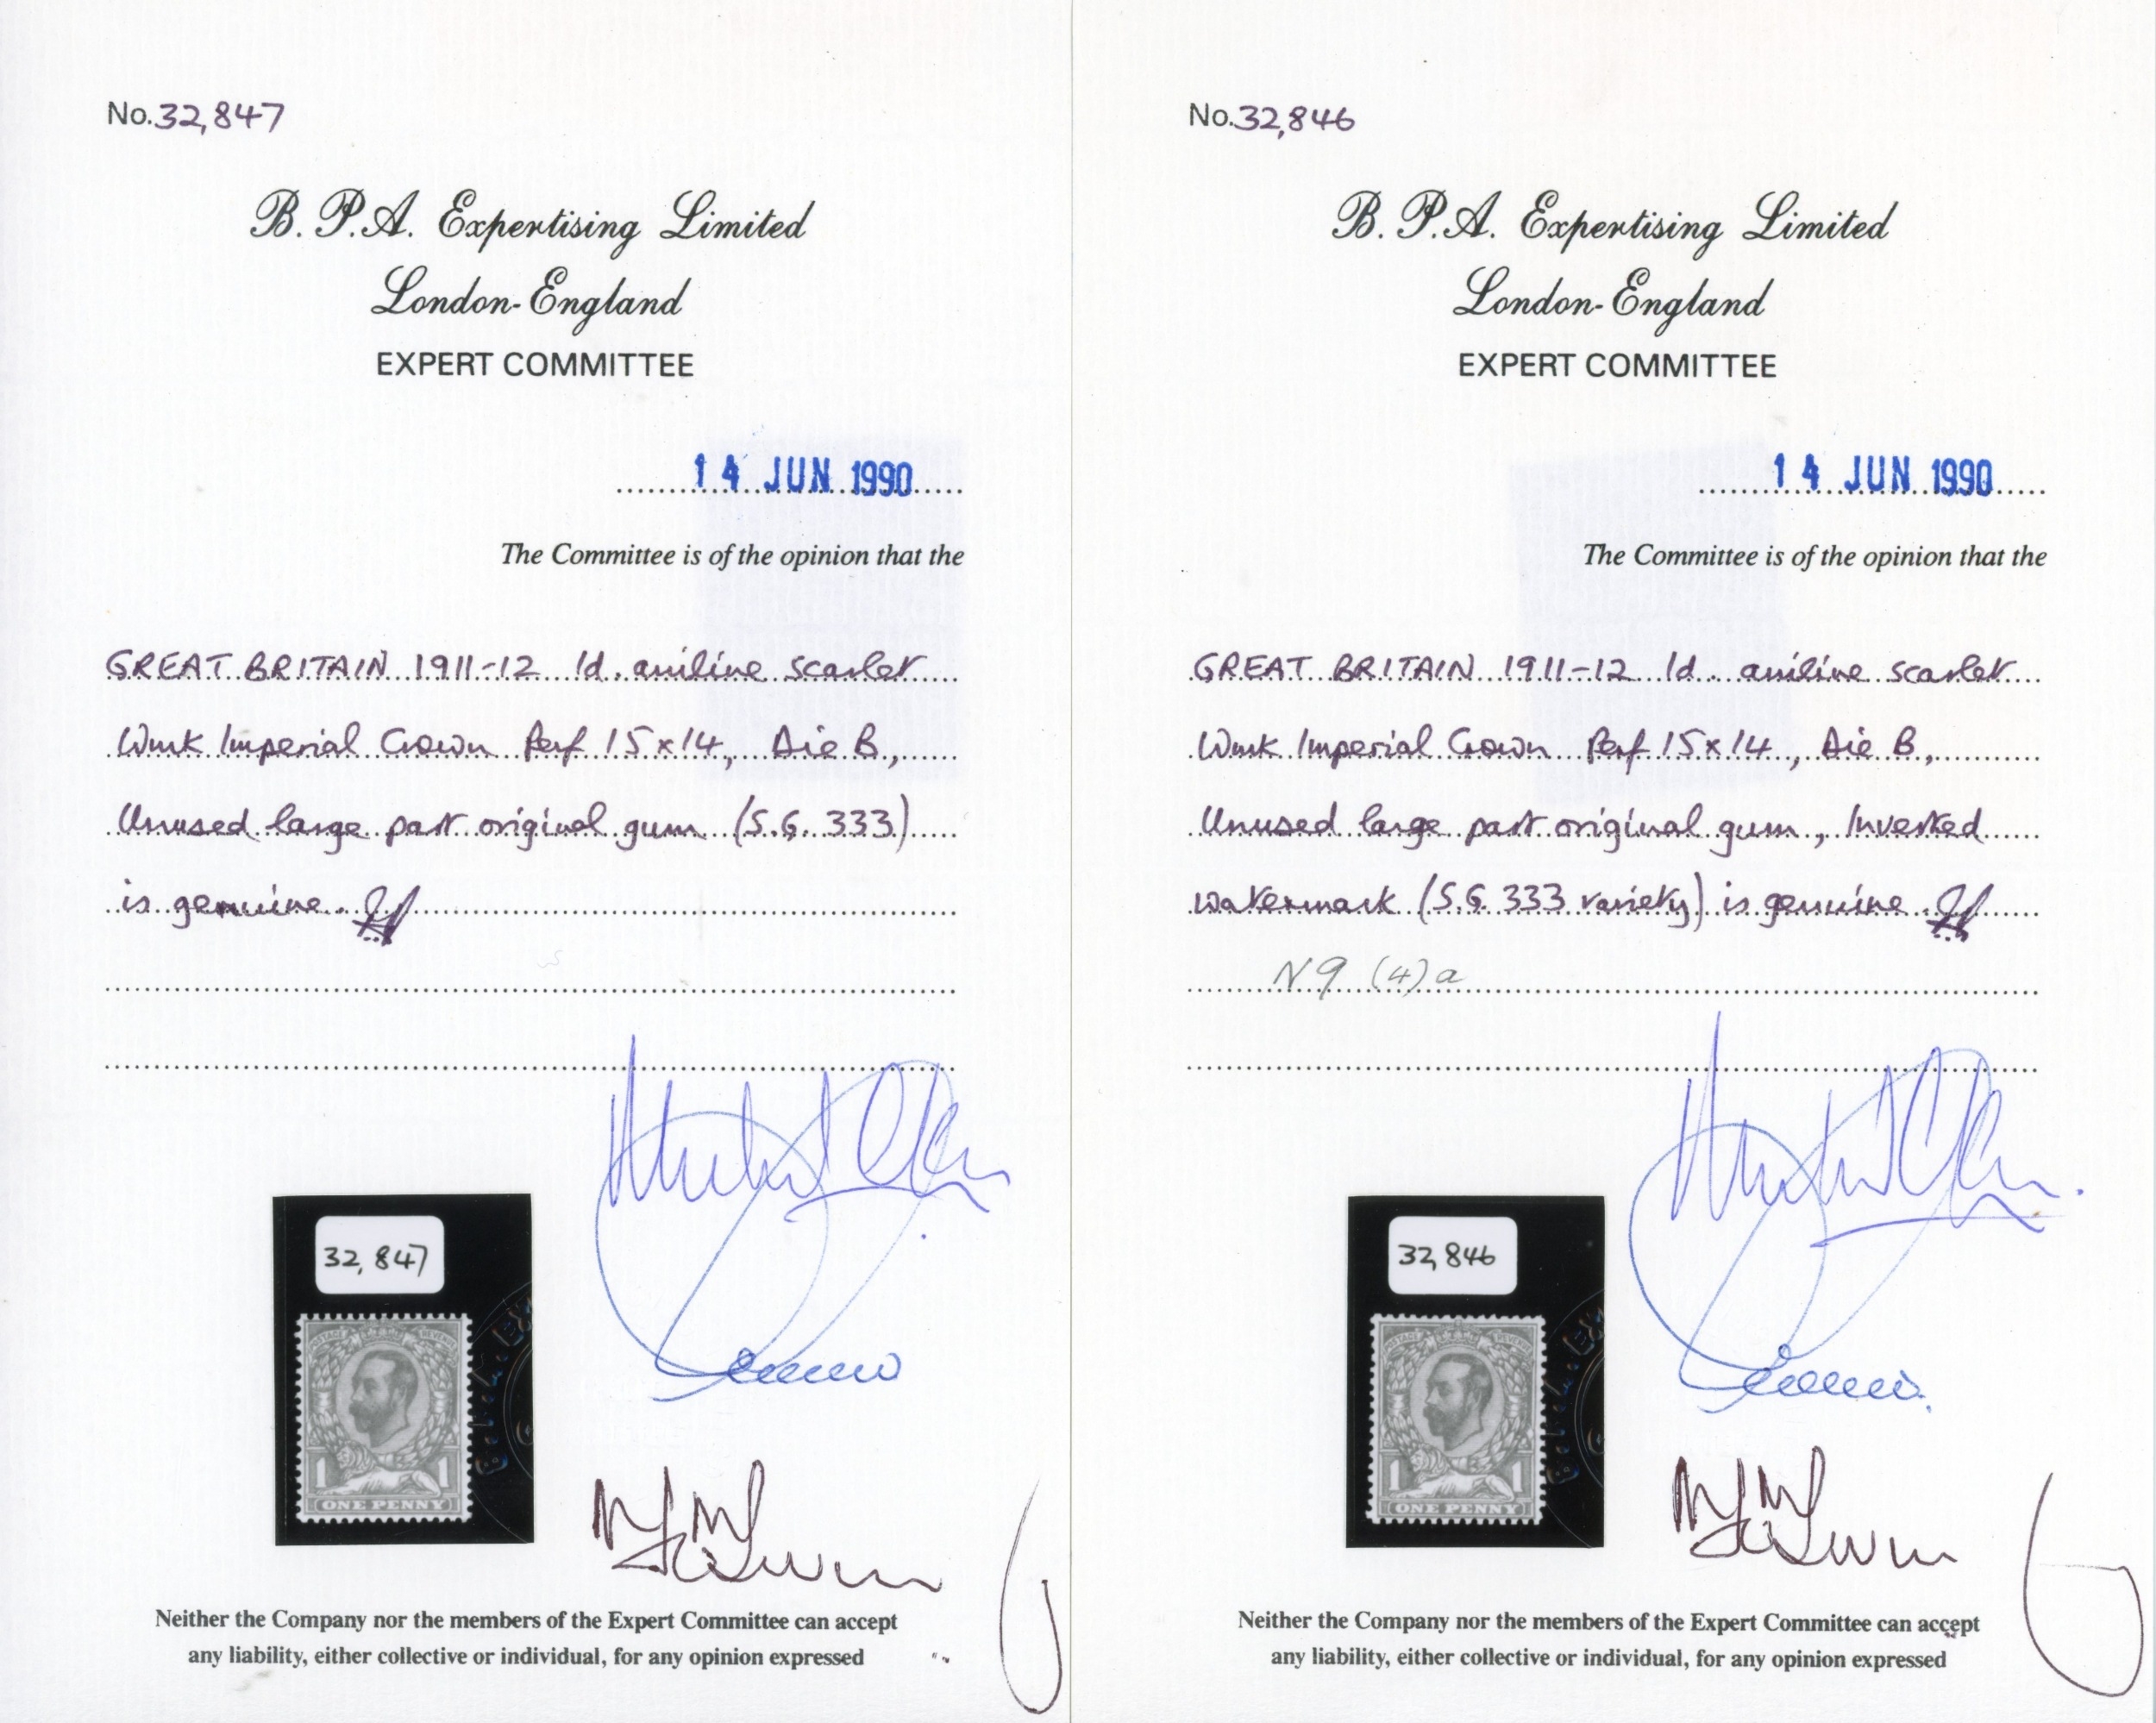 No. 32,847
B. P. A. Expertising Limited
London-England
EXPERT COMMITTEE
14 JUN 1990
The Committee is of the opinion that the
GREAT BRITAIN 1911-12 1d. aniline scarlet
Wmk Imperial Crown Perf 15x14, Die B,
Unused large part original gum (S.G. 333)
is genuine.
32,847
POSTAGE REVENUE
1 1
ONE PENNY
Neither the Company nor the members of the Expert Committee can accept
any liability, either collective or individual, for any opinion expressed
No. 32,846
B. P. A. Expertising Limited
London-England
EXPERT COMMITTEE
14 JUN 1990
The Committee is of the opinion that the
GREAT BRITAIN 1911-12 1d. aniline scarlet
Wmk Imperial Crown Perf 15x14, Die B,
Unused large part original gum, Inverted
watermark (S.G. 333 variety) is genuine.
N9 (4) a
32,846
POSTAGE REVENUE
1 1
ONE PENNY
Neither the Company nor the members of the Expert Committee can accept
any liability, either collective or individual, for any opinion expressed